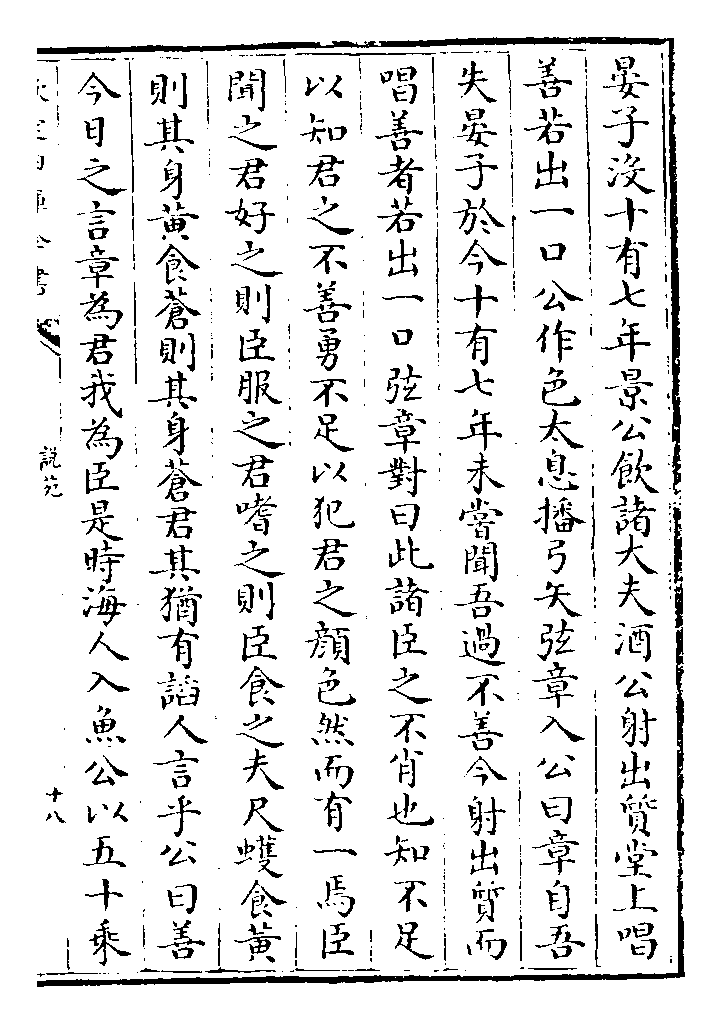 晏子没十有七年景公飲諸大夫酒公射出質堂上唱
善若出一口公作色太息播弓矢弦章入公曰章自吾
失晏子於今十有七年未嘗聞吾過不善今射出質而
唱善者若出一口弦章對曰此諸臣之不肖也知不足
以知君之不善勇不足以犯君之顔色然而有一焉臣
聞之君好之則臣服之君嗜之則臣食之夫尺蠖食黄
則其身黄食蒼則其身蒼君其猶有謟人言乎公曰善
今日之言章為君我為臣是時海人入魚公以五十乘
欽定四庫全書
說苑
十八